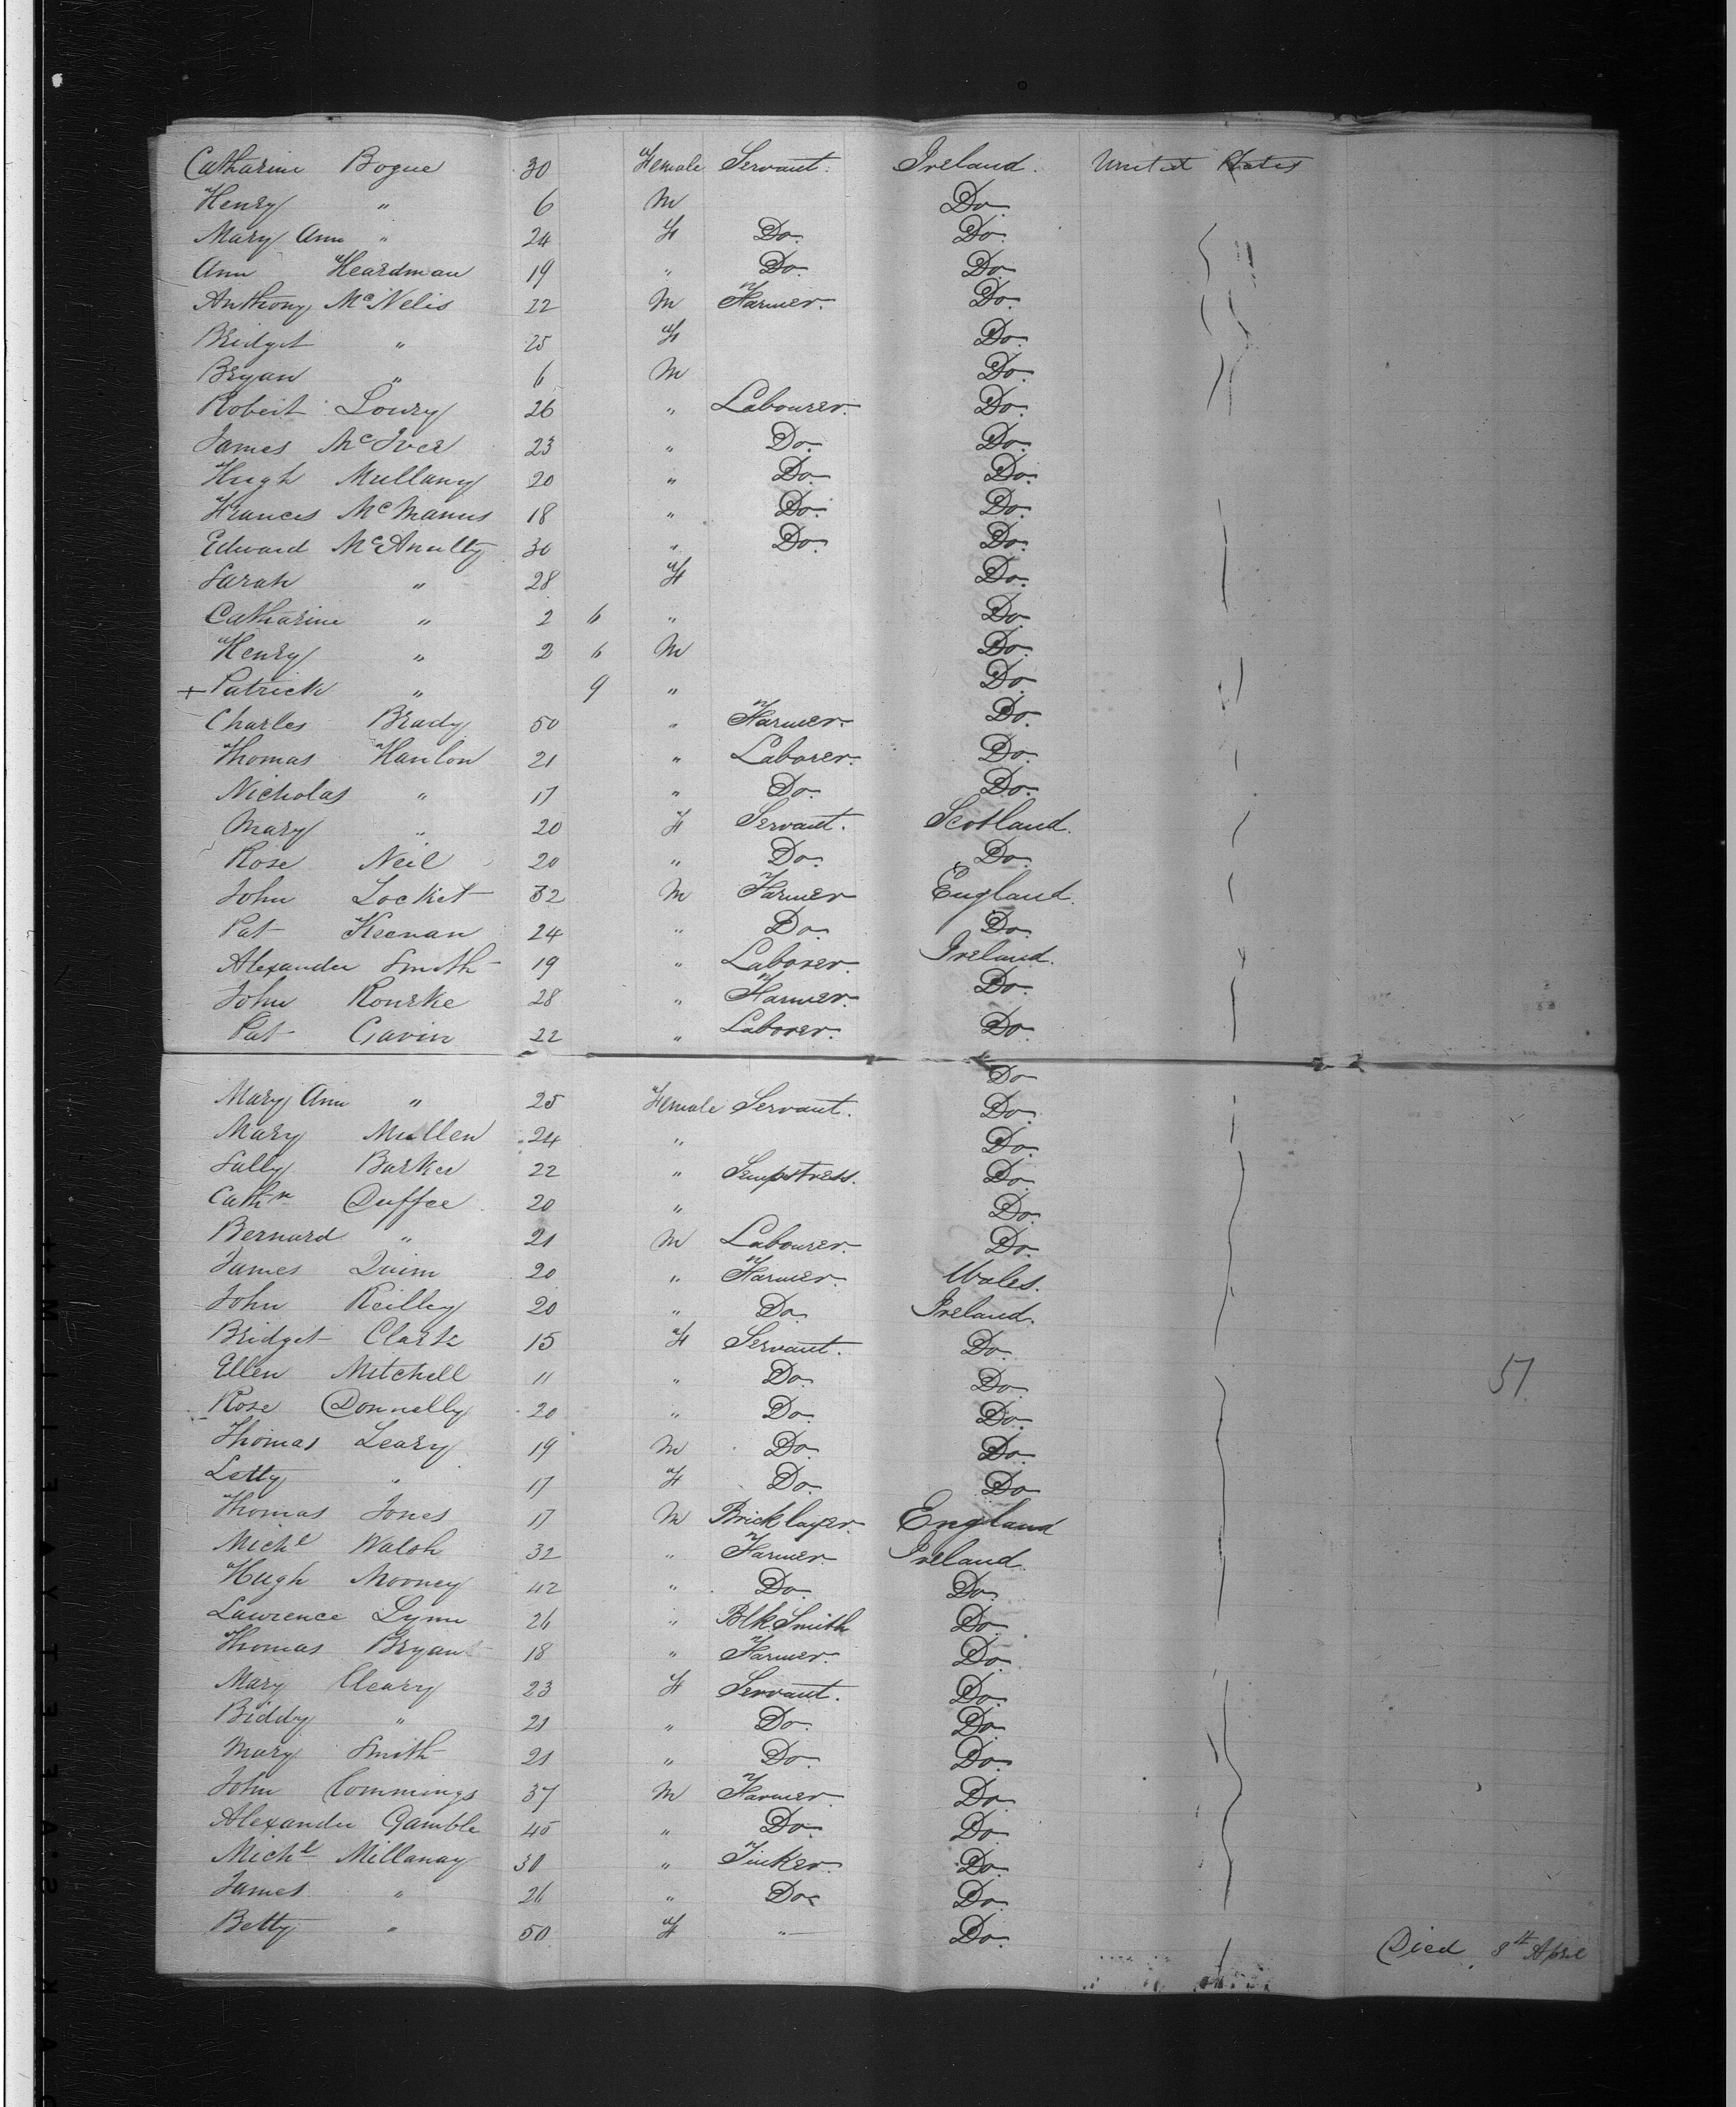 Catharine Bogue 30 Female Servant. Ireland. United States
Henry " 6 M Do.
Mary Ann " 24 F Do. Do.
Ann Heardman 19 " Do. Do.
Anthony McNelis 22 M Farmer. Do.
Bridget " 25 F Do.
Bryan " 6 M Do.
Robert Lowry 26 " Labourer. Do.
James McIver 23 " Do. Do.
Hugh Mullany 20 " Do. Do.
Frances McManus 18 " Do. Do.
Edward McAnulty 30 " Do. Do.
Sarah " 28 F Do.
Catharine " 2 6 " Do.
Henry " 2 6 M Do.
+ Patrick " 9 " Do.
Charles Brady 50 " Farmer. Do.
Thomas Hanlon 21 " Laborer. Do.
Nicholas " 17 " Do. Do.
Mary " 20 F Servant. Scotland.
Rose Neil 20 " Do. Do.
John Locket 32 M Farmer England.
Pat Keenan 24 " Do. Do.
Alexander Smith 19 " Laborer. Ireland.
John Rourke 28 " Farmer. Do.
Pat Gavin 22 " Laborer. Do.
Do
Mary Ann " 25 Female Servant. Do.
Mary Mullen 24 " Do.
Sally Barker 22 " Sempstress. Do.
Cathn Duffee 20 " Do.
Bernard " 21 M Labourer. Do.
James Quinn 20 " Farmer. Wales.
John Reilley 20 " Do. Ireland.
Bridget Clark 15 F Servant. Do.
Ellen Mitchell 11 " Do. Do. 51
Rose Donnelly 20 " Do. Do.
Thomas Leary 19 M Do. Do.
Letty " 17 F Do. Do
Thomas Jones 17 M Bricklayer. England
Michl Walsh 32 " Farmer Ireland.
Hugh Mooney 42 " Do. Do.
Lawrence Lynn 26 " Blk Smith Do.
Thomas Bryant 18 " Farmer. Do.
Mary Cleary 23 F Servant. Do.
Biddy " 21 " Do. Do.
Mary Smith 21 " Do. Do.
John Commings 37 M Farmer. Do.
Alexander Gamble 45 " Do. Do.
Michl Millanay 30 " Tinker. Do.
James " 26 " Do. Do.
Betty " 50 F " Do. Died 8th April